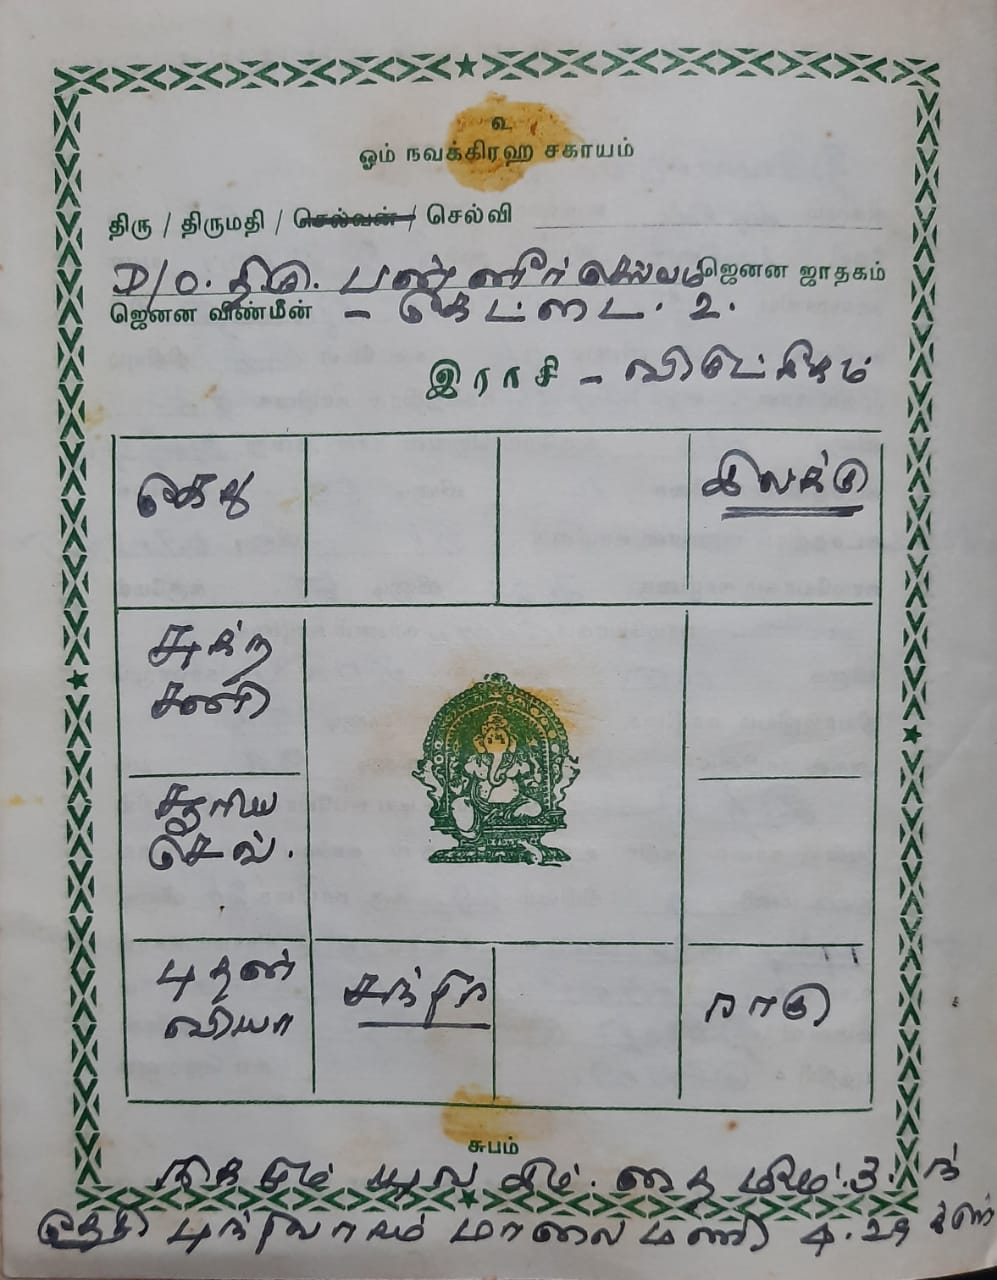 உ
ஓம் நவக்கிரஹ சகாயம்
திரு / திருமதி / செல்வன் / செல்வி
D/O. திரு. பன்னீர் செல்வம் ஜெனன ஜாதகம்
ஜெனன விண்மீன் - கேட்டை. 2.
இராசி -
கேது
இலக்கு
சுக்ர
சனி
சூரிய
செவ்.
புதன்
வியா
சந்திர
ராகு
சுபம்
நிகழும் யுவ தை
மாலை மணி 4.29